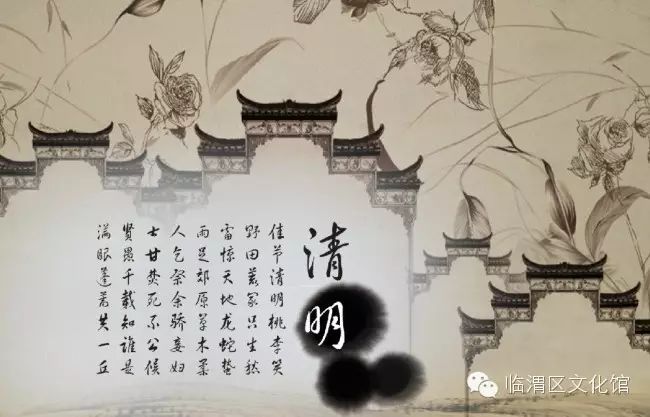 清明
佳节清明桃李笑
野田荒冢只生愁
雷惊天地龙蛇蛰
雨足郊原草木柔
人乞祭余骄妾妇
士甘焚死不公候
贤愚千载知谁是
满眼蓬蒿共一丘
临渭区文化馆